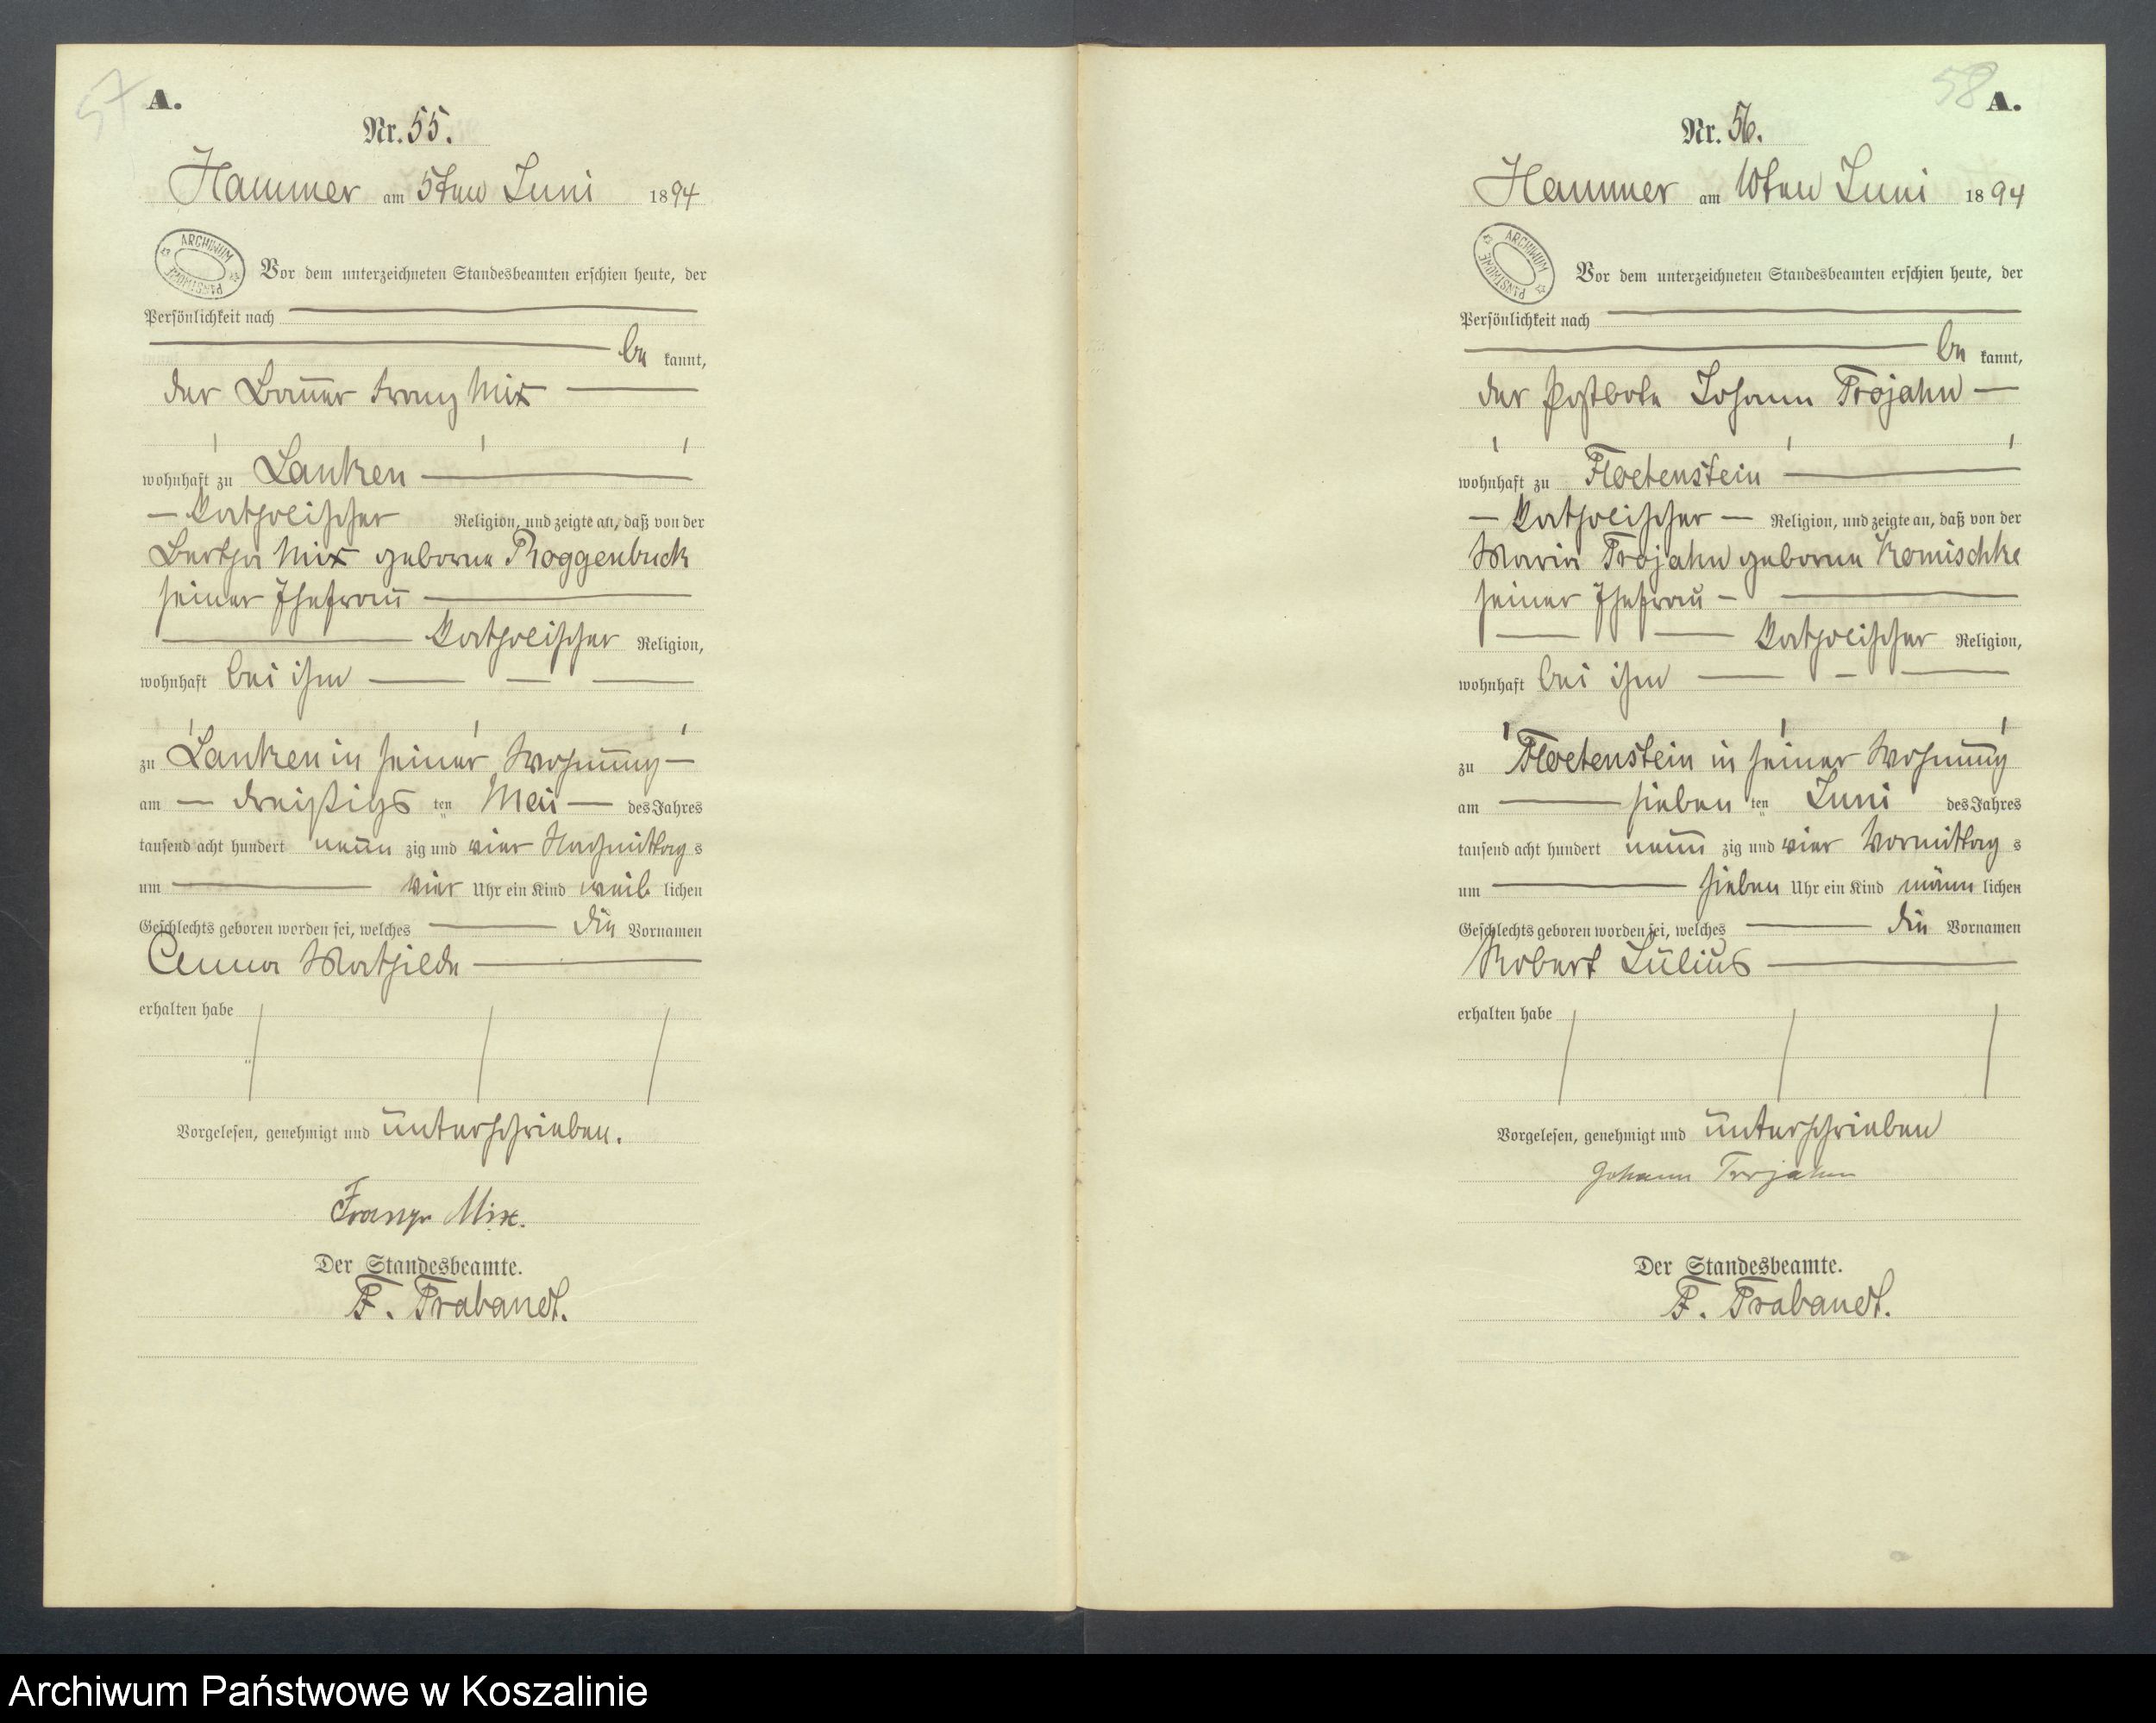 57
A.
Nr. 55.
Hammer am 5ten Juni 1894
ARCHIWUM PAŃSTWOWE
Vor dem unterzeichneten Standesbeamten erschien heute, der
Persönlichkeit nach
be kannt,
der Bauer Franz Mix
wohnhaft zu Lanken
katholischer Religion, und zeigte an, daß von der
Bertha Mix geborne Roggenbuck
seiner Ehefrau
katholischer Religion,
wohnhaft bei ihm
zu Lanken in seiner Wohnung
am dreißigs ten Mai des Jahres
tausend acht hundert neun zig und vier Nachmittag s
um vier Uhr ein Kind weib lichen
Geschlechts geboren worden sei, welches die Vornamen
Anna Mathilde
erhalten habe
Vorgelesen, genehmigt und unterschrieben.
Franz Mix.
Der Standesbeamte.
F. Trabandt.
58
A.
Nr. 56.
Hammer am 10ten Juni 1894
ARCHIWUM PAŃSTWOWE
Vor dem unterzeichneten Standesbeamten erschien heute, der
Persönlichkeit nach
be kannt,
der Postbote Johann Trojahn
wohnhaft zu Floetenstein
katholischer Religion, und zeigte an, daß von der
Maria Trojahn geborne Komischke
seiner Ehefrau
katholischer Religion,
wohnhaft bei ihm
zu Floetenstein in seiner Wohnung
am sieben ten Juni des Jahres
tausend acht hundert neun zig und vier Vormittag s
um sieben Uhr ein Kind männ lichen
Geschlechts geboren worden sei, welches die Vornamen
Robert Julius
erhalten habe
Vorgelesen, genehmigt und unterschrieben
Johann Trojahn
Der Standesbeamte.
F. Trabandt.
Archiwum Państwowe w Koszalinie